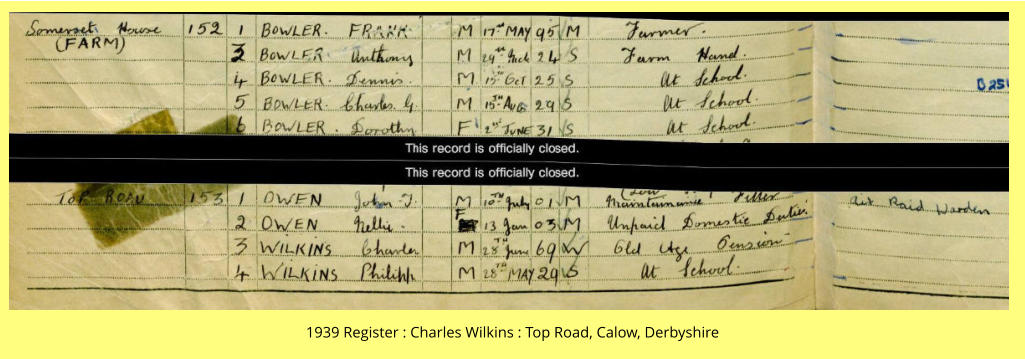 Somerset House 152 1 BOWLER. FRANK M 17th MAY 95 M Farmer.
(FARM) 3 BOWLER Anthony M 24 S Farm Hand.
4 BOWLER. Dennis. M 15th Oct 25 S At School.
5 BOWLER. Charles G. M 15TH AUG 29 S At School.
6 BOWLER. Dorothy F 2nd JUNE 31 S At School.
This record is officially closed.
This record is officially closed.
TOP ROAD 153 1 OWEN John T. M 10TH July 01 M Maintainance Fitter Air Raid Warden
2 OWEN Nellie. F 13 Jan 03 M Unpaid Domestic Duties
3 WILKINS Charles M 28TH June 69 W Old Age Pension
4 WILKINS Philip M 28TH MAY 29 S At School.
1939 Register : Charles Wilkins : Top Road, Calow, Derbyshire